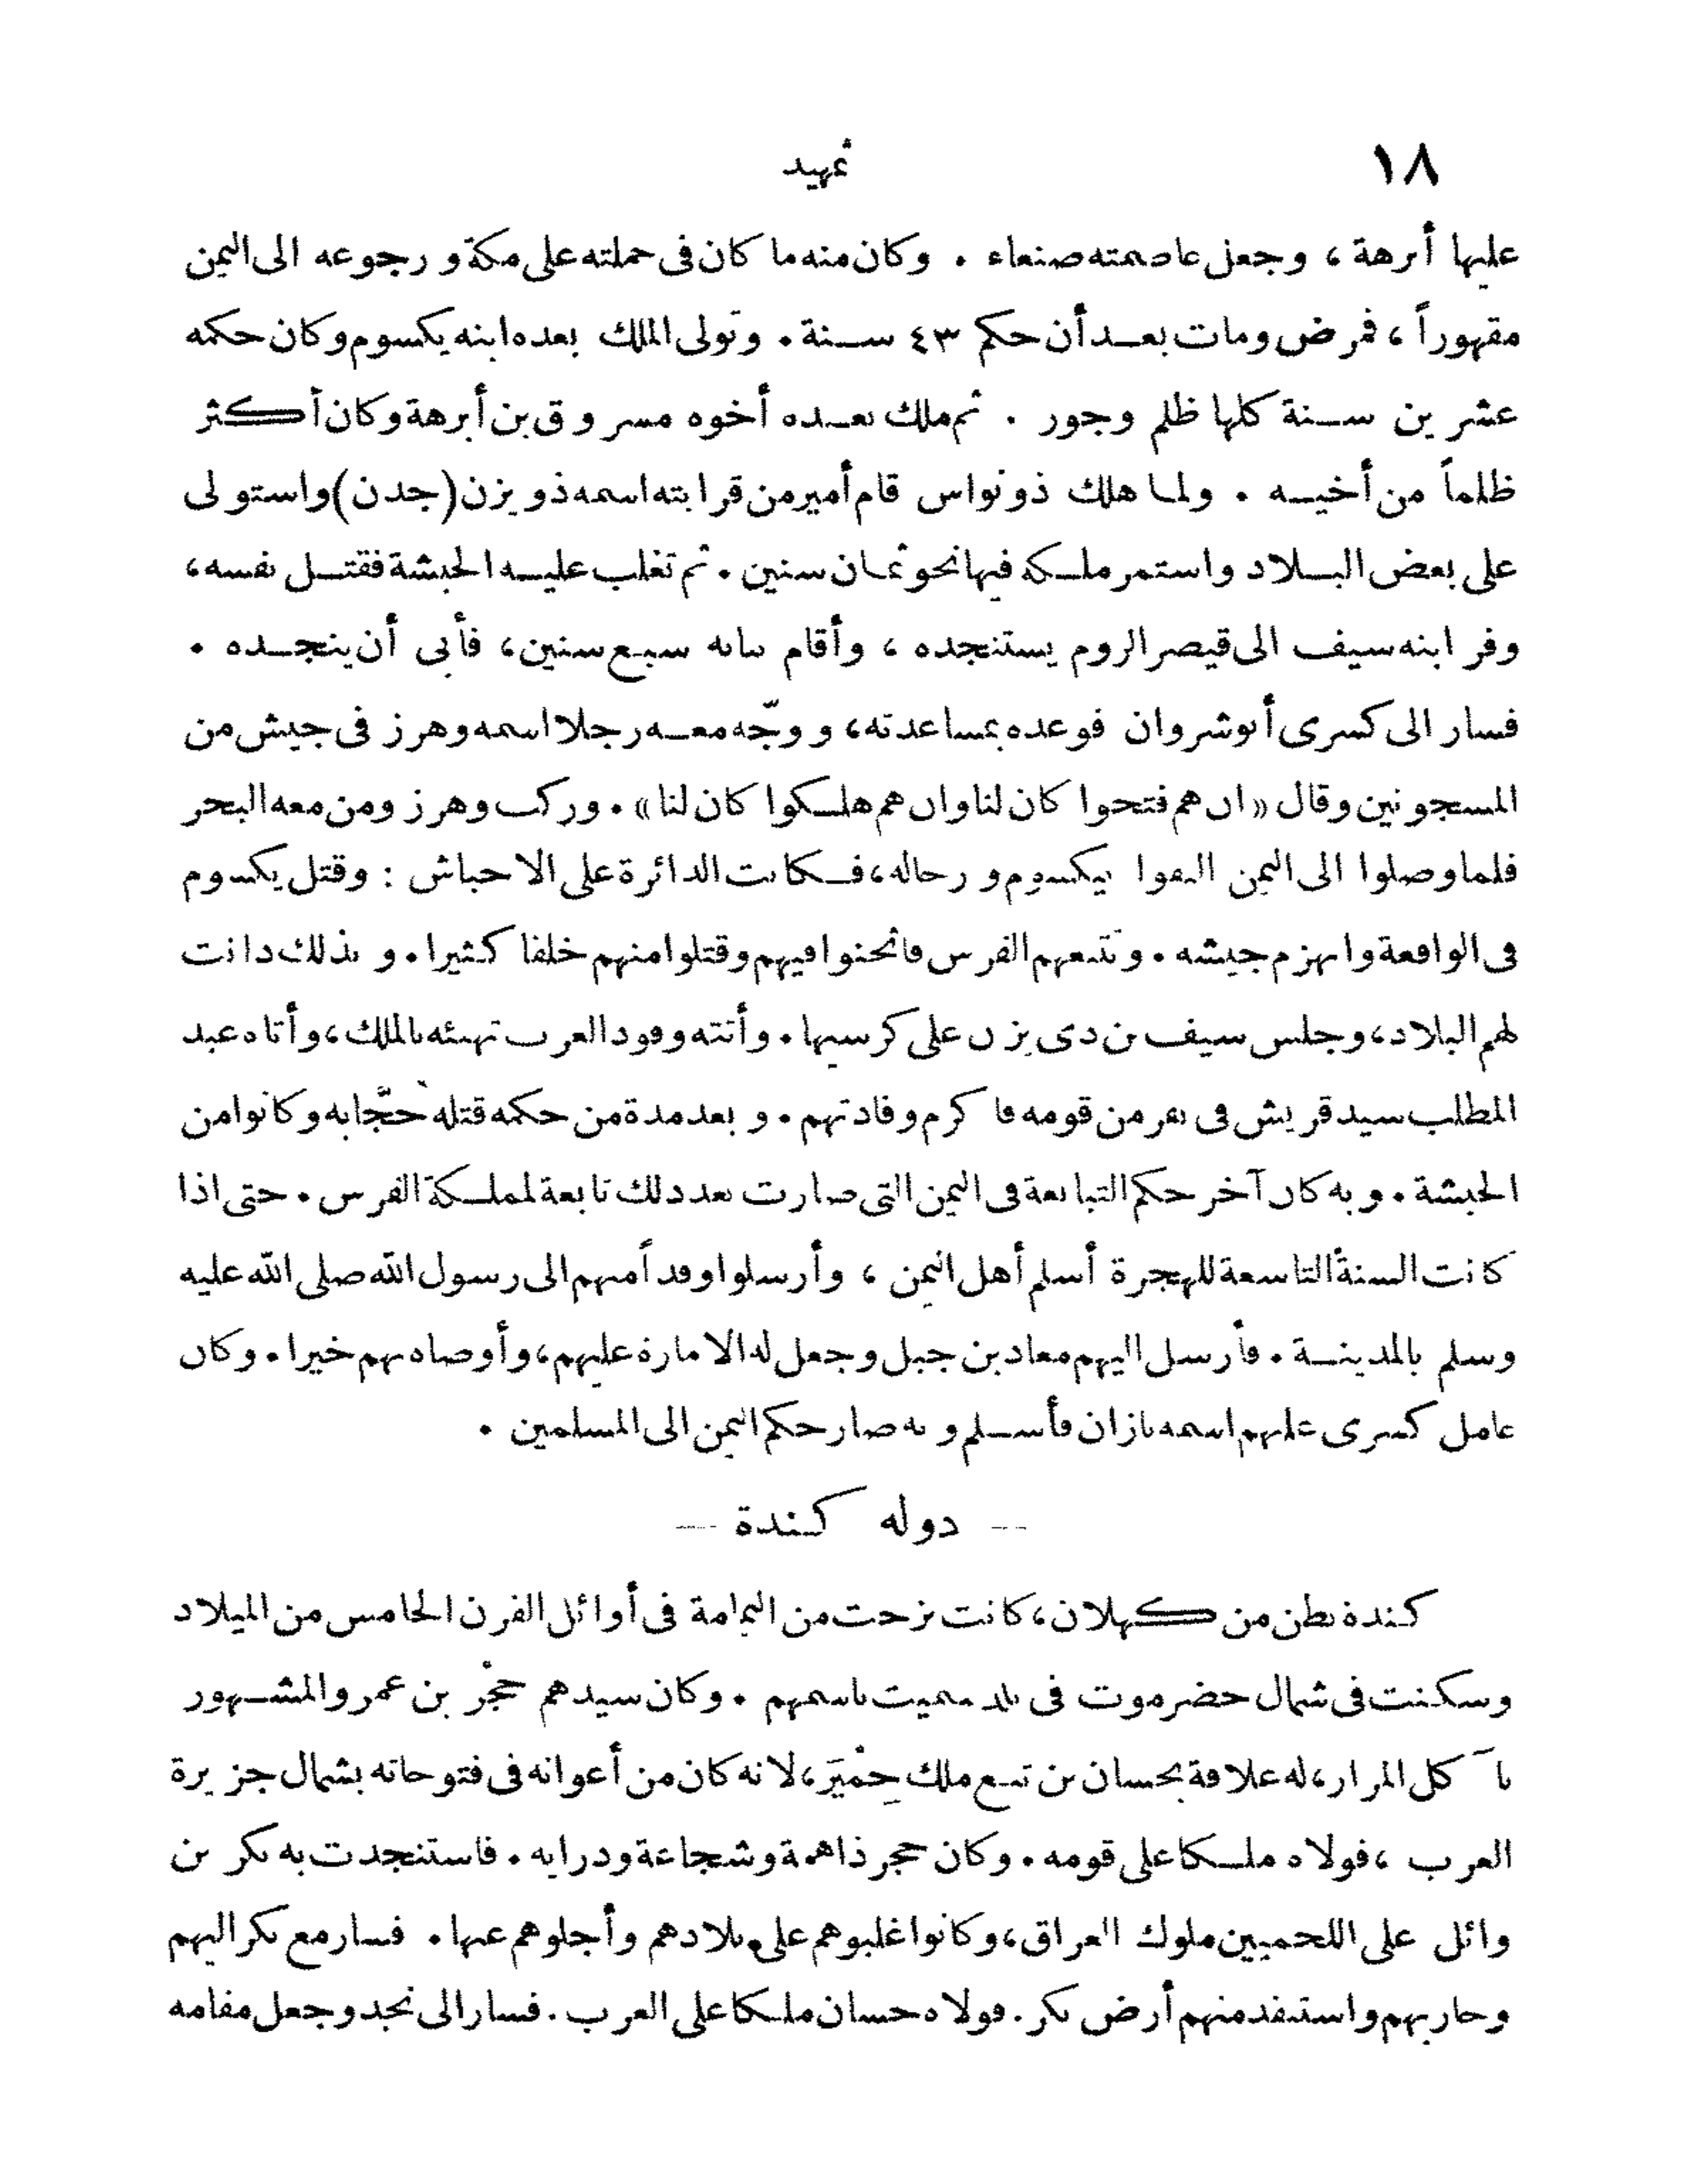 ١٨
تمهيد
عليها أبرهة ، وجعل عاصمته صنعاء . وكان منه ما كان فى حملته على مكة ورجوعه الى اليمن
مقهوراً ، فمرض ومات بعد أن حكم ٤٣ سنة . وتولى الملك بعده ابنه يكسوم وكان حكمه
عشرين سنة كلها ظلم وجور . ثم ملك بعده أخوه مسروق بن أبرهة وكان أكثر
ظلماً من أخيه . ولما هلك ذو نواس قام أمير من قرابته اسمه ذو يزن (جدن) واستولى
على بعض البلاد واستمر ملكه فيها نحو ثمان سنين . ثم تغلب عليه الحبشة فقتل نفسه ،
وفر ابنه سيف الى قيصر الروم يستنجده ، وأقام ببابه سبع سنين ، فأبى أن ينجده .
فسار الى كسرى أنوشروان فوعده بمساعدته ، ووجّه معه رجلا اسمه وهرز فى جيش من
المسجونين وقال « ان هم فتحوا كان لنا وان هم هلكوا كان لنا » . وركب وهرز ومن معه البحر
فلما وصلوا الى اليمن التقوا بيكسوم ورجاله ، فكانت الدائرة على الاحباش : وقتل يكسوم
فى الواقعة وانهزم جيشه . وتتبعهم الفرس فاثخنوا فيهم وقتلوا منهم خلقا كثيرا . و بذلك دانت
لهم البلاد ، وجلس سيف بن ذى يزن على كرسيها . وأتته وفود العرب تهنئه بالملك ، وأتاه عبد
المطلب سيد قريش فى نفر من قومه فاكرم وفادتهم . و بعد مدة من حكمه قتله حجّابه وكانوا من
الحبشة . و به كان آخر حكم التبابعة فى اليمن التى صارت بعد ذلك تابعة لمملكة الفرس . حتى اذا
كانت السنة التاسعة للهجرة أسلم أهل اليمن ، وأرسلوا وفداً منهم الى رسول الله صلى الله عليه
وسلم بالمدينة . فأرسل اليهم معاذ بن جبل وجعل له الامارة عليهم ، وأوصاه بهم خيرا . وكان
عامل كسرى عليهم اسمه بازان فأسلم و به صار حكم اليمن الى المسلمين .
-- دولة كندة --
كندة بطن من كهلان ، كانت نزحت من اليمامة فى أوائل القرن الخامس من الميلاد
وسكنت فى شمال حضرموت فى بلد سميت باسمهم . وكان سيدهم حجْر بن عمرو المشهور
بآكل المرار ، له علاقة بحسان بن تبع ملك حِمْيَر ، لانه كان من أعوانه فى فتوحاته بشمال جزيرة
العرب ، فولاه ملكا على قومه . وكان حجر ذا همة وشجاعة ودراية . فاستنجدت به بكر بن
وائل على اللخميين ملوك العراق ، وكانوا غلبوهم على بلادهم وأجلوهم عنها . فسار مع بكر اليهم
وحاربهم واستنقذ منهم أرض بكر . فولاه حسان ملكا على العرب . فسار الى نجد وجعل مقامه